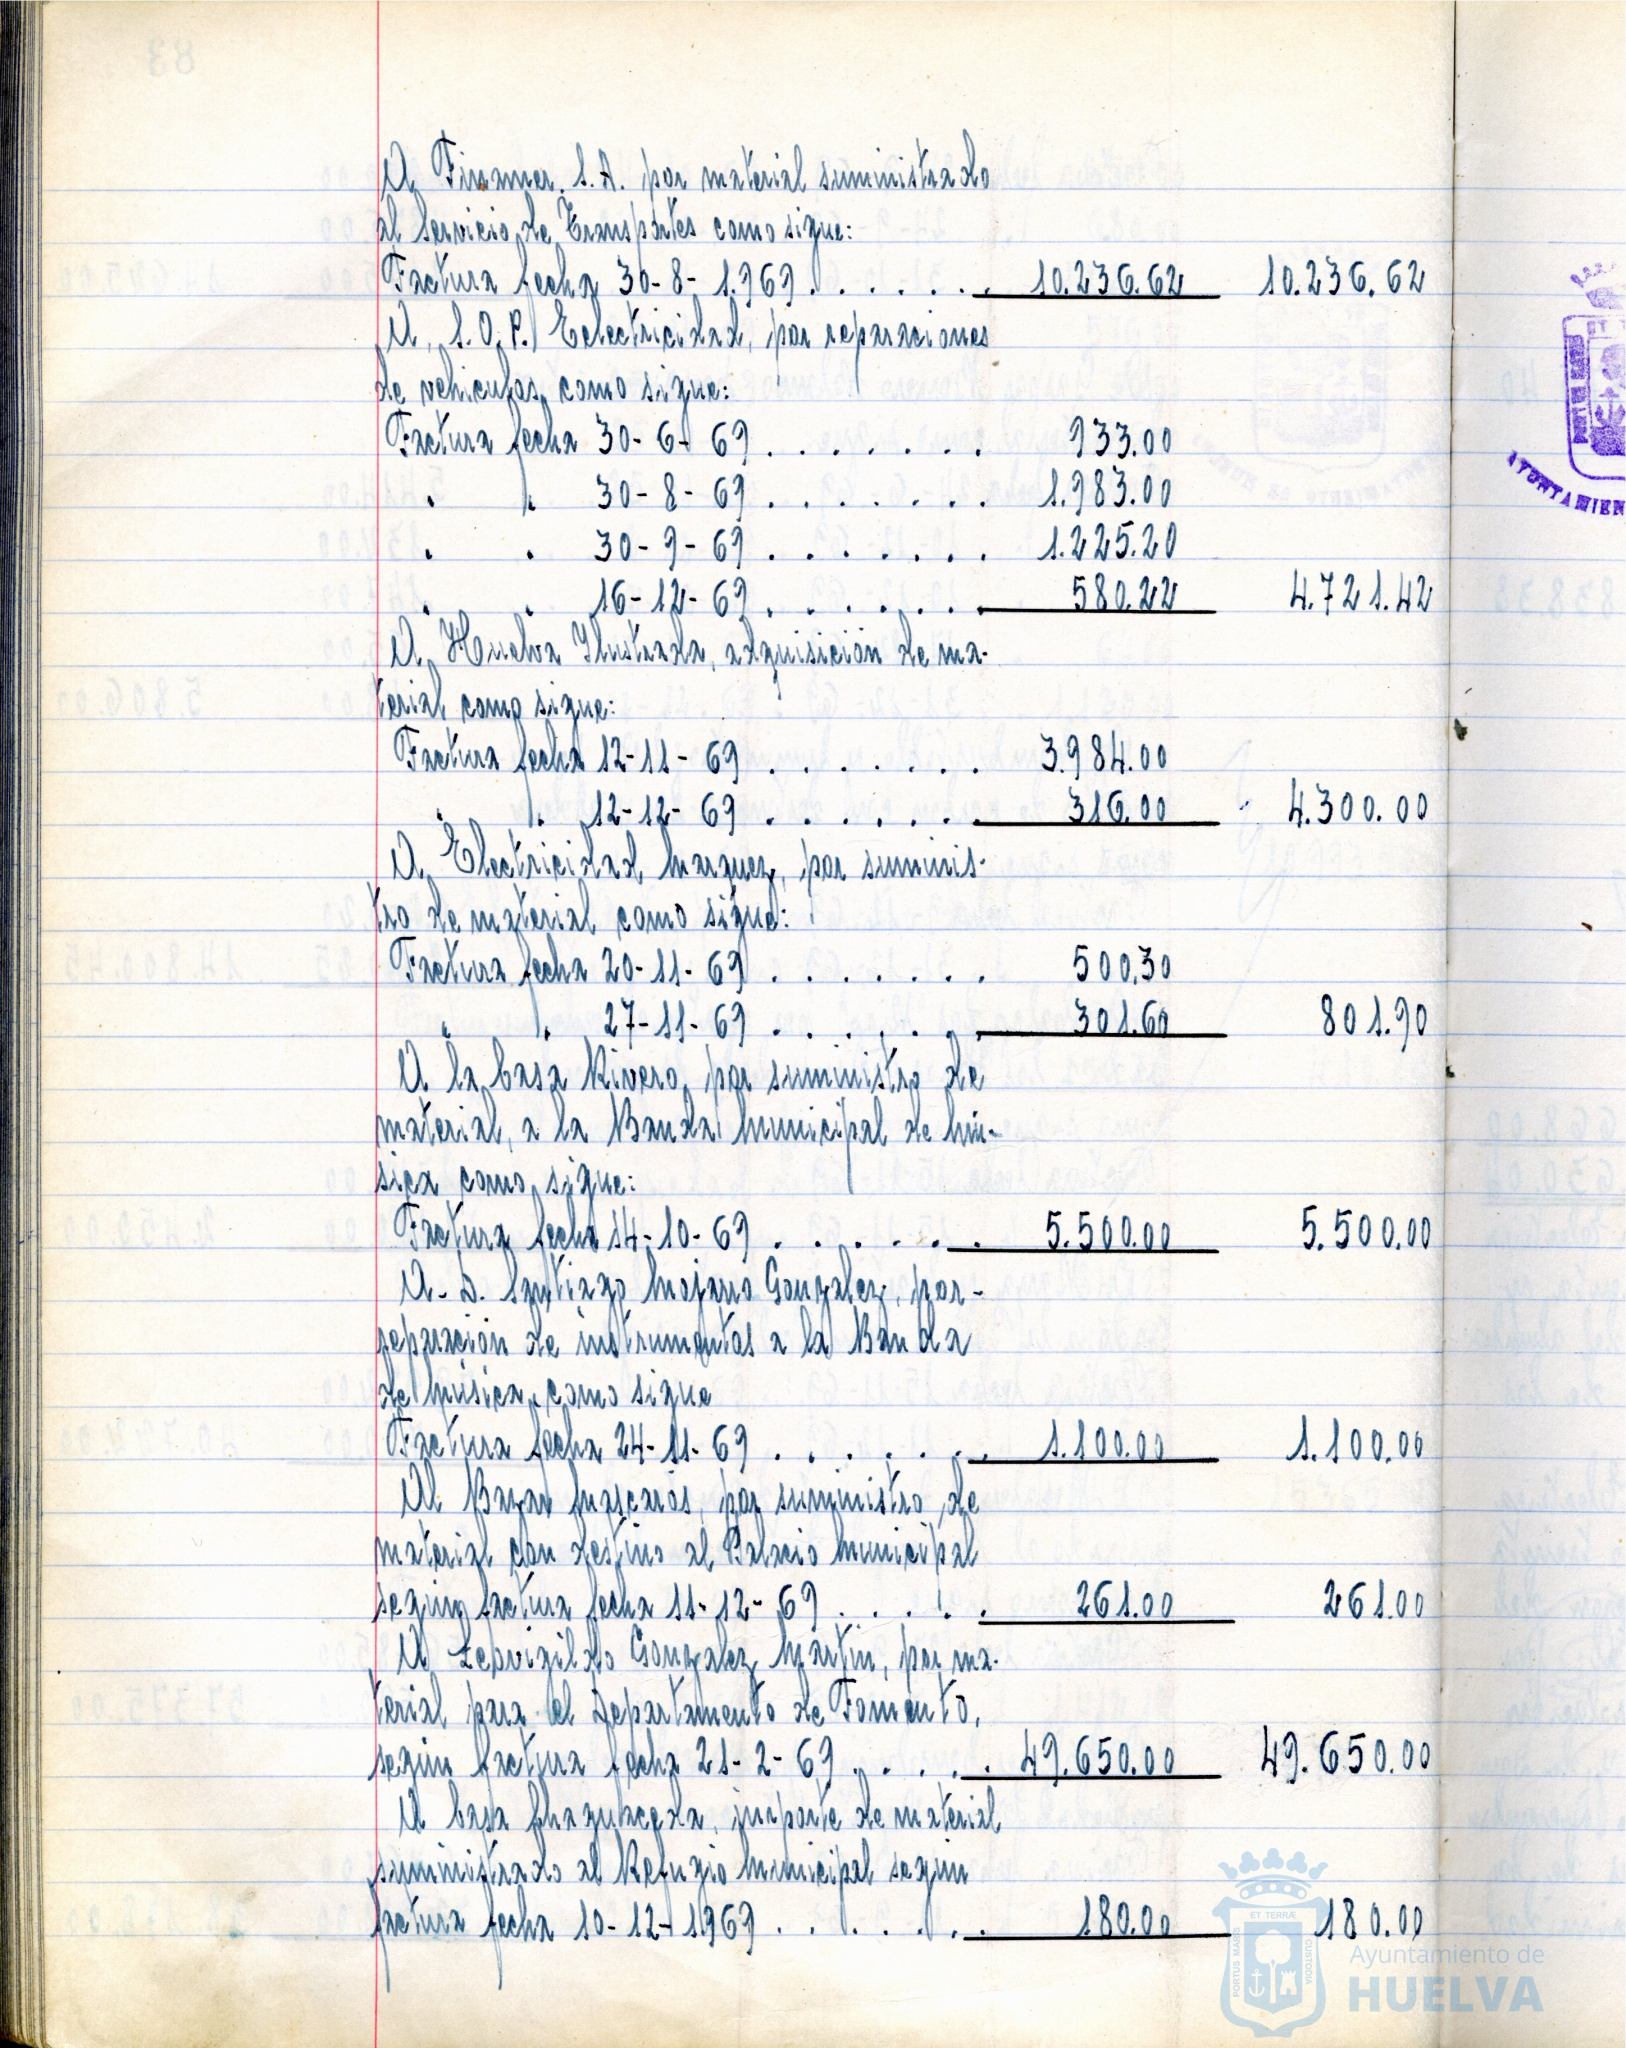 A Finamer. S.A. por material suministrado
al Servicio de Transportes como sigue:
Factura fecha 30-8-1.969 . . . . . . 10.236.62 10.236.62
A, S.O.P. Eelectricidad, por reparaciones
de vehiculos, como sigue:
Factura fecha 30-6-69 . . . . . . . 933.00
" " 30-8-69 . . . . . . . 1.983.00
" " 30-9-69 . . . . . . . 1.225.20
" " 16-12-69 . . . . . . 580.22 4.721.42
A, Huelva Ilustrada, adquisición de ma-
terial como sigue:
Factura fecha 12-11-69 . . . . . . . 3.984.00
" " 12-12-69 . . . . . . . 316.00 4.300.00
A, Electricidad Marquez, por suminis-
tro de material como sigue:
Factura fecha 20-11-69 . . . . . . . 500.30
" " 27-11-69 . . . . . . 301.60 801.90
A la Casa Rivero, por suministro de
material, a la Banda Municipal de Mú-
sica como sigue:
Factura fecha 14-10-69 . . . . . . 5.500.00 5.500.00
A. D. Santiago Mojarro Gonzalez, por-
reparación de instrumentos a la Banda
de Música, como sigue
Factura fecha 24-11-69 . . . . . . 1.100.00 1.100.00
Al Bazar Mascarós, por suministro de
material con destino al Palacio Municipal
según factura fecha 11-12-69 . . . . . 261.00 261.00
A Leovigildo Gonzalez Martín, por ma-
terial para el Departamento de Fomento,
según factura fecha 21-2-69 . . . . . 49.650.00 49.650.00
A Casa importe de material
suministrado al Refugio Municipal según
factura fecha 10-12-1969 . . . . . . 180.00 180.00
AYUNTAMIEN
ET TERRÆ
PORTUS MARIS
CUSTODIA
Ayuntamiento de
HUELVA